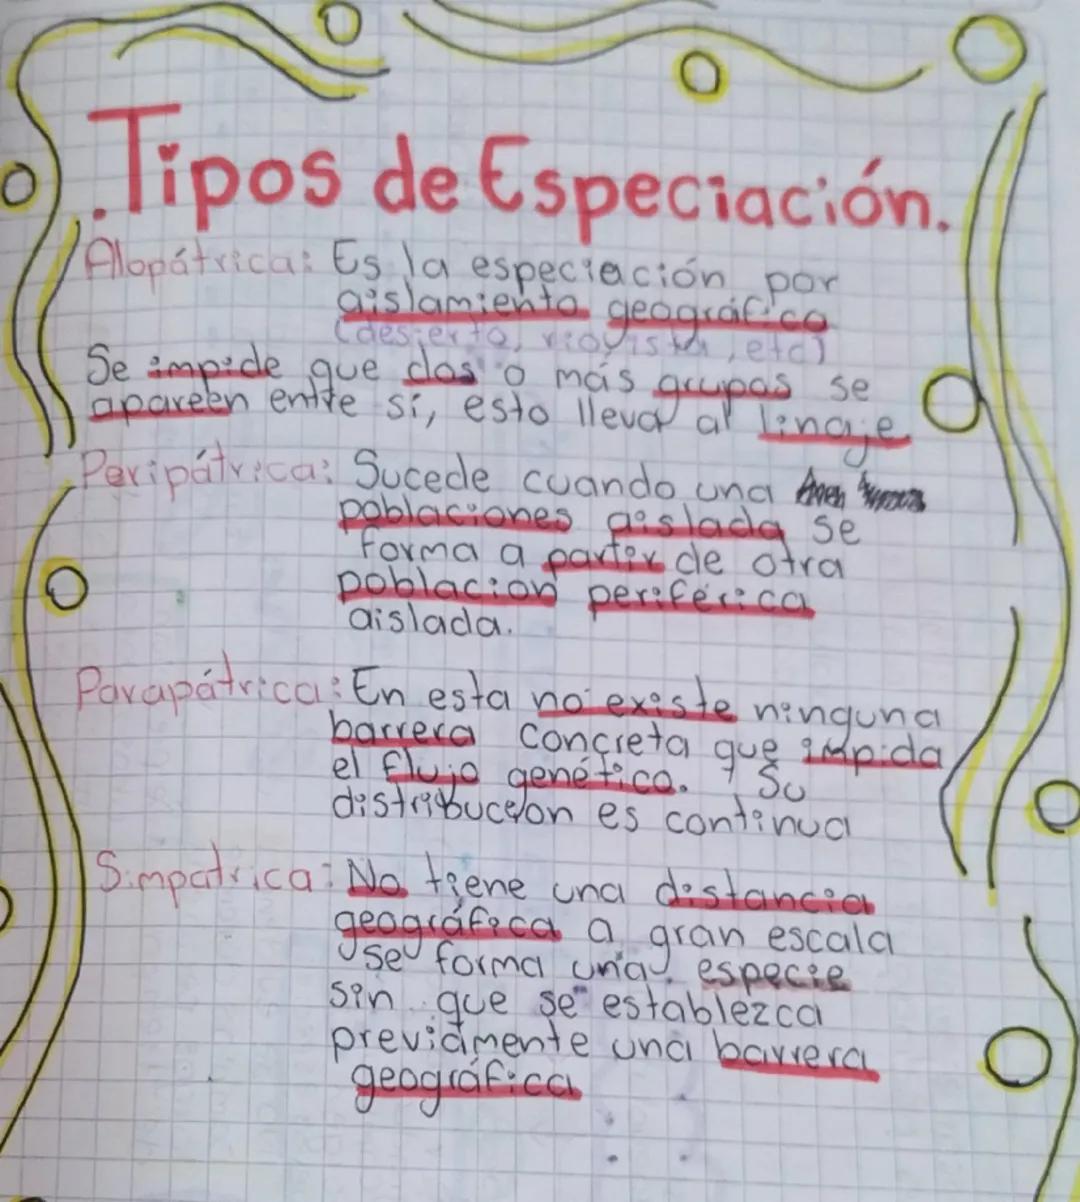 Tipos de Especiación.
Alopátrica: Es la especiación por
aislamiento geográfica
(desierto, río, vista, etc)
Se impide que dos o más grupos se
apareen entre sí, esto lleva al linaje
Peripátrica: Sucede cuando una
poblaciones aislada se
forma a partir de otra
población periférica
aislada.
Parapátrica: En esta no existe ninguna
barrera concreta que impida
el flujo genético. Su
distribuceion es continua
Simpatrica: No tiene una distancia
geográfica a gran escala
se forma una especie
sin que se establezca
previamente una barrera
geográfica